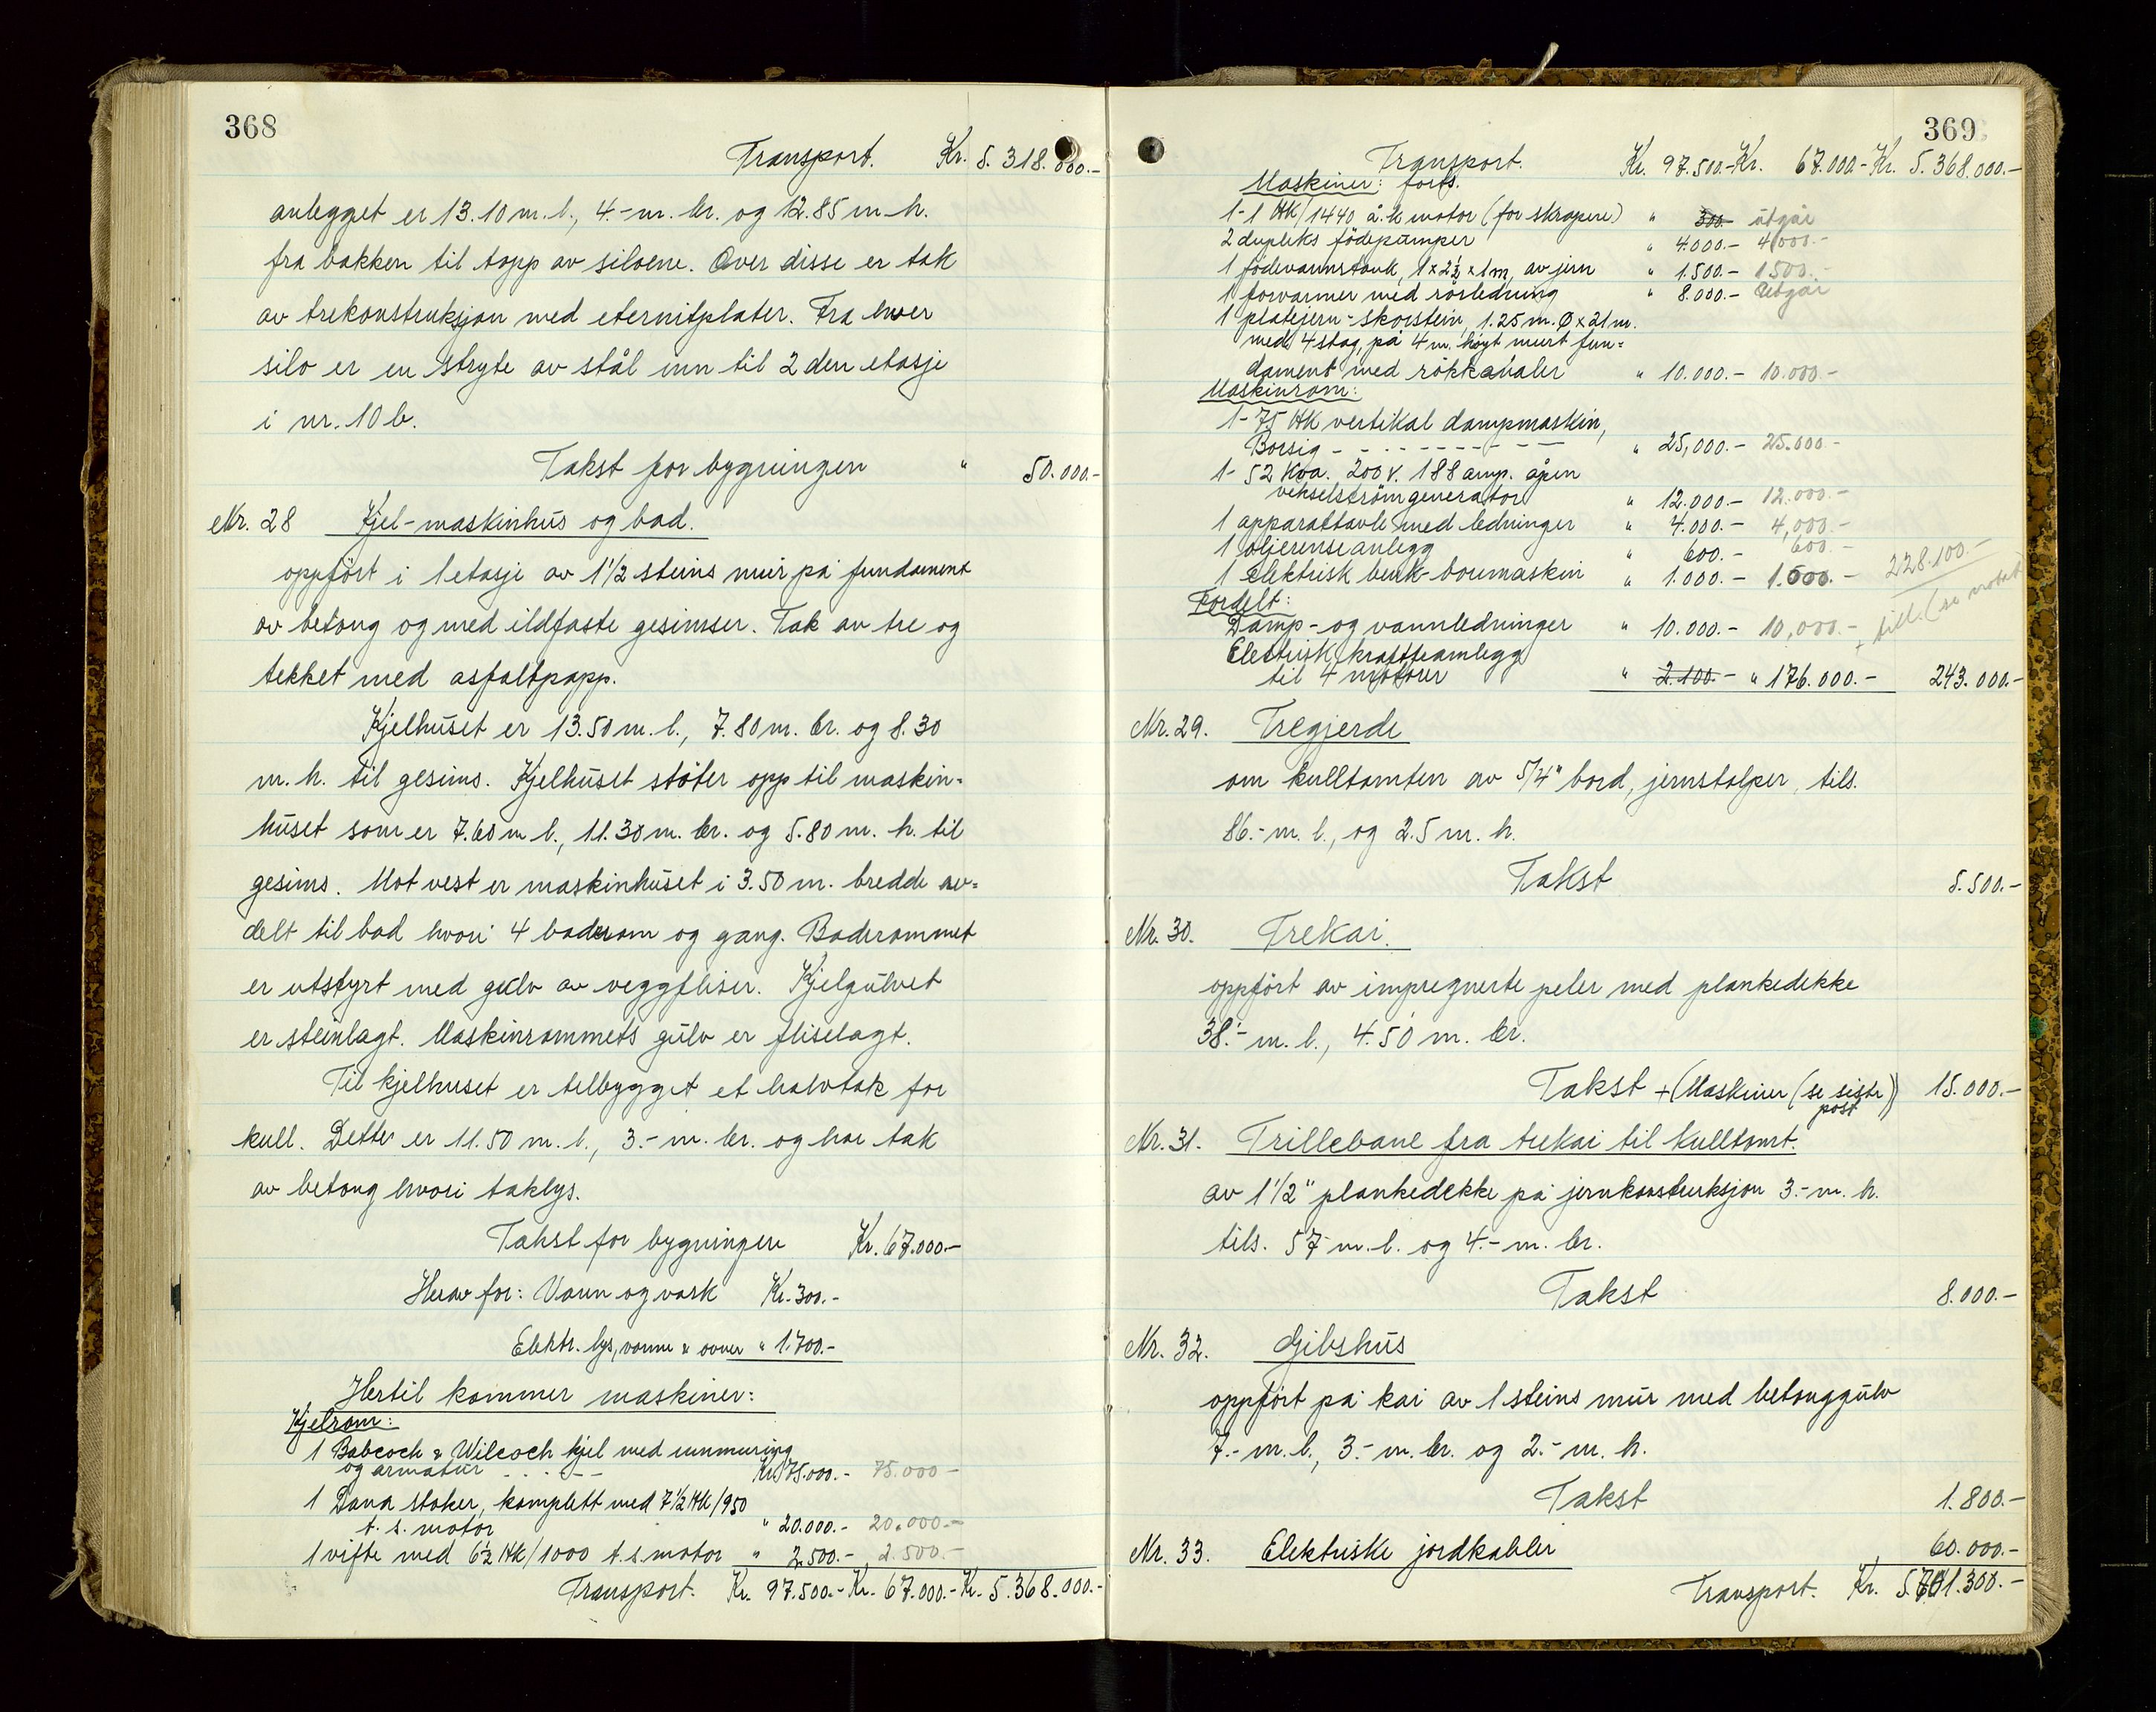 368
Transport. Kr. 5.318.000.-
anlegget er 13.10 m. l., 4.- m. br. og 12.85 m. h.
fra bakken til topp av siloene. Over disse er tak
av trekonstruksjon med eternitplater. Fra hver
silo er en stryte av stål inn til 2 den etasje
i nr. 10 b.
Takst for bygningen " 50.000.-
Nr. 28 Kjel-maskinhus og bad.
oppført i 1 etasje av 1 1/2 steins mur på fundament
av betong og med ildfaste gesimser. Tak av tre og
tekket med asfaltpapp.
Kjelhuset er 13.50 m. l., 7.80 m. br. og 8.30
m. h. til gesims. Kjelhuset støter opp til maskin=
huset som er 7.60 m l., 11.30 m. br. og 5.80 m. h. til
gesims. Mot vest er maskinhuset i 3.50 m. bredde av=
delt til bad hvori 4 baderom og gang. Baderommet
er utstyrt med gulv av veggfliser. Kjelgulvet
er steinlagt. Maskinrommets gulv er fliselagt.
Til kjelhuset er tilbygget et halvtak for
kull. Dette er 11.50 m. l., 3.- m. br. og har tak
av betong hvori taklys.
Takst for bygningen Kr. 67.000.-
Herav for: Vann og vask Kr. 300.-
Elektr. lys, varme & ovner " 1.700.-
Hertil kommer maskiner:
Kjelrom:
1 Babcock & Wilcoch kjel med innmuring
og armatur - - - - Kr. 75.000.- 75.000.-
1 Dana stoker, komplett med 7 1/2 HK/950
t. s. motor " 20.000.- 20.000.-
1 vifte med 6 1/2 HK/1000 t. s. motor " 2.500.- 2.500.-
Transport. Kr. 97.500.- Kr. 67.000.- Kr. 5.368.000.-
369
Transport. Kr. 97.500.- Kr. 67.000.- Kr. 5.368.000.-
Maskiner: forts.
1-1 HK/1440 å. k motor (for skrapere) " 300.- utgår
2 dupleks fødepumper " 4.000.- 4.000.-
1 fødevannstank, 1 x 2 1/2 x 1 m, av jern " 1.500.- 1500.-
1 forvarmer med rørledning " 8.000.- utgår
1 platejern-skorstein, 1.25 m. Ø x 21 m.
med 4 stag, på 4 m. høyt murt fun=
dament med røkkanaler " 10.000.- 10.000.-
Maskinrom:
1- 75 HK vertikal dampmaskin,
Borsig - - - - - - - - " 25,000.- 25.000.-
1- 52 Kva. 200 V. 188 amp. åpen
vekselstrømgenerator " 12.000.- 12.000.-
1 apparattavle med ledninger " 4.000.- 4,000.-
1 oljerenseanlegg " 600.- 600.-
1 elektrisk benk-boremaskin " 1.000.- 1.500.- 228.100.-
Fordelt:
Damp- og vannledninger " 10.000.- 10,000.- + till. (se
Elektrisk kraftteamlegg
til 4 motorer " 2.100.- " 176.000.- 243.000.-
Nr. 29. Tregjerde
om kulltomten av 5/4" bord, jernstolper, tils.
86.- m. l., og 2.5 m. h.
Takst 5.500.-
Nr. 30. Trekai.
oppført av impregnerte peler med plankedekke
38.- m. l., 4.50 m. br.
Takst + (Maskiner (se siste post)) 15.000.-
Nr. 31. Trillebane fra trekai til kulltomt.
av 1 1/2" plankedekke på jernkonstruksjon 3.- m. h.
tils. 57 m. l. og 4.- m. br.
Takst 8.000.-
Nr. 32. Gibshus
oppført på kai av 1 steins mur med betonggulv
7.- m. l., 3.- m. br. og 2.- m. h.
Takst 1.800.-
Nr. 33. Elektriske jordkabler 60.000.-
Transport. Kr. 5.701.300.-